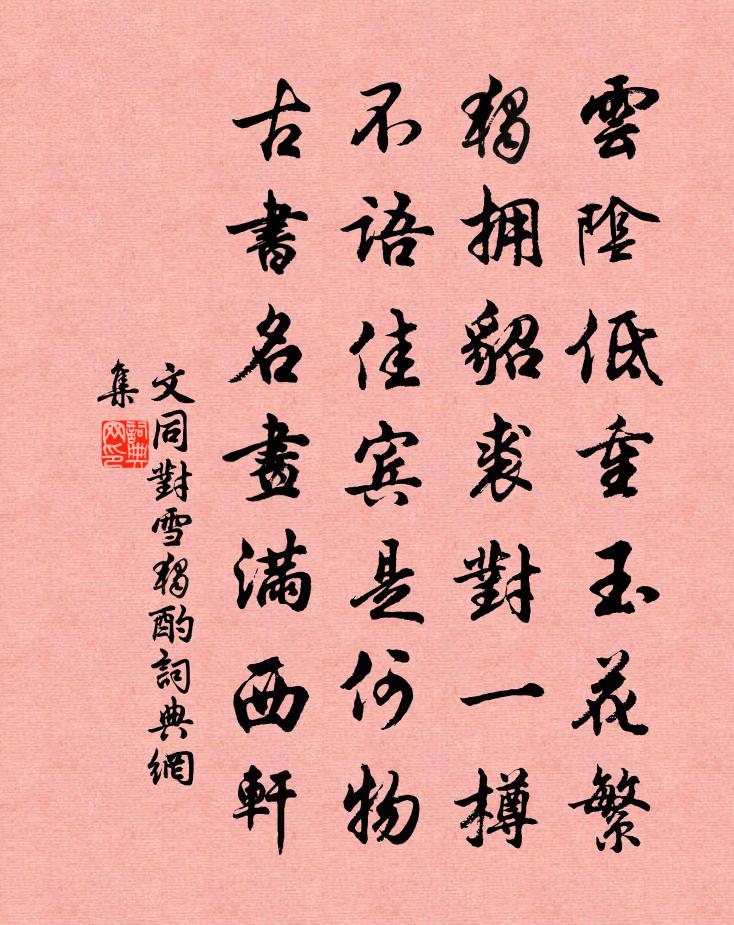 雲陰低重玉花繁
獨擁貂裘對一樽
不語佳賓是何物
古書名畫滿西軒
文同對雪獨酌詞典網
集
詞典网印